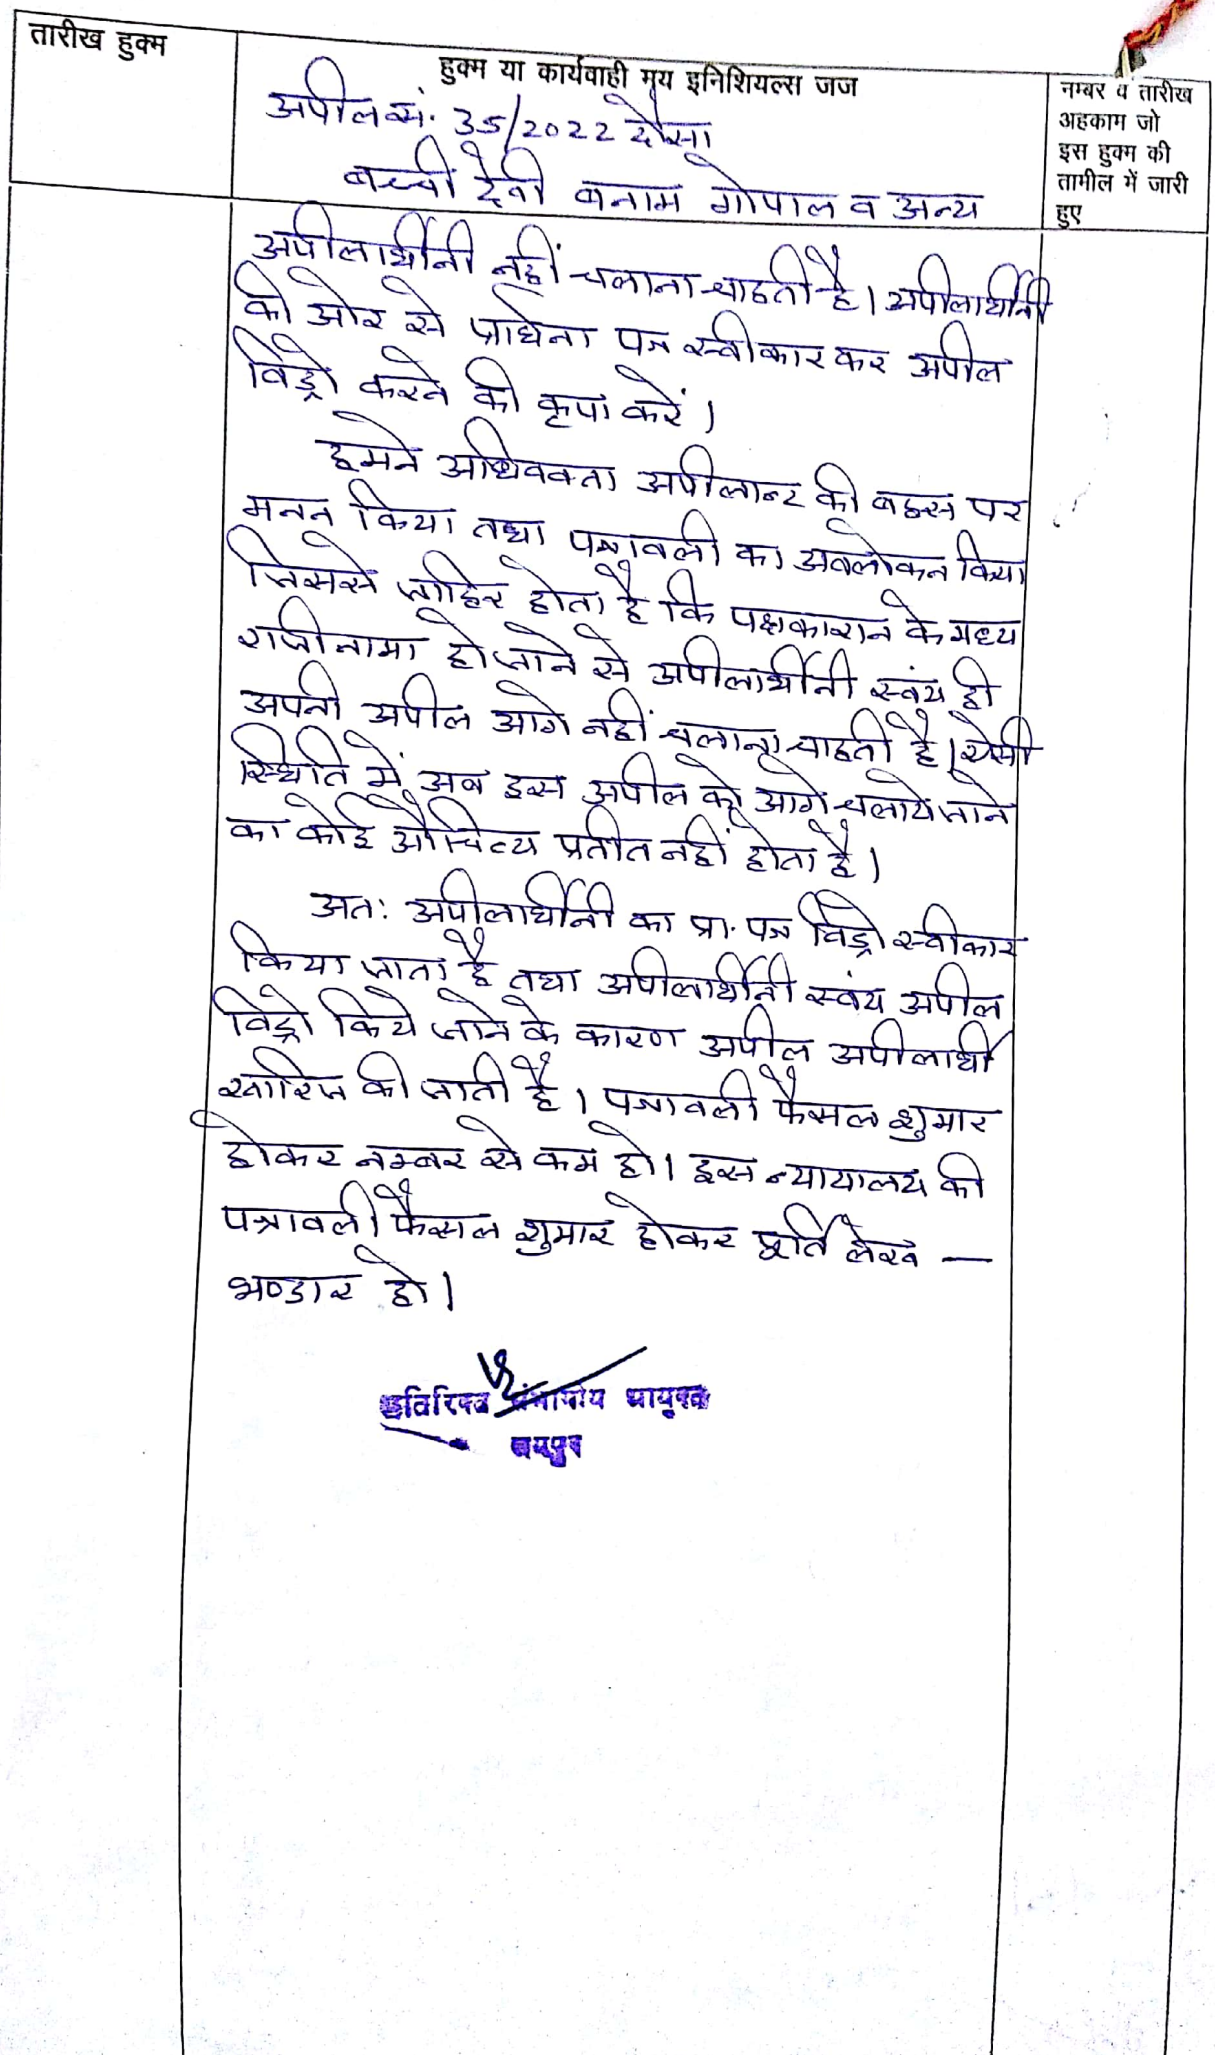 तारीख हुक्म
हुक्म या कार्यवाही मय इनिशियल्स जज
नम्बर व तारीख
अहकाम जो
इस हुक्म की
तामील में जारी
हुए
अपील सं. 35/2022 दौसा
बच्ची देवी बनाम गोपाल व अन्य
अपीलार्थीनी नहीं चलाना चाहती है। अपीलार्थीनी
की ओर से प्रार्थना पत्र स्वीकार कर अपील
विड्रो करने की कृपा करें।
हमने अधिवक्ता अपीलान्ट की बहस पर
मनन किया तथा पत्रावली का अवलोकन किया
जिससे जाहिर होता है कि पक्षकारान के मध्य
राजीनामा हो जाने से अपीलार्थीनी स्वंय ही
अपनी अपील आगे नहीं चलाना चाहती है। ऐसी
स्थिति में अब इस अपील को आगे चलाये जाने
का कोई औचित्य प्रतीत नहीं होता है।
अत: अपीलार्थीनी का प्रा. पत्र विड्रो स्वीकार
किया जाता है तथा अपीलार्थीनी स्वंय अपील
विड्रो किये जाने के कारण अपील अपीलार्थी
खारिज की जाती है। पत्रावली फैसल शुमार
होकर नम्बर से कम हो। इस न्यायालय की
पत्रावली फैसल शुमार होकर पूर्ति लेख —
भण्डार हो।
अतिरिक्त संभागीय आयुक्त
जयपुर